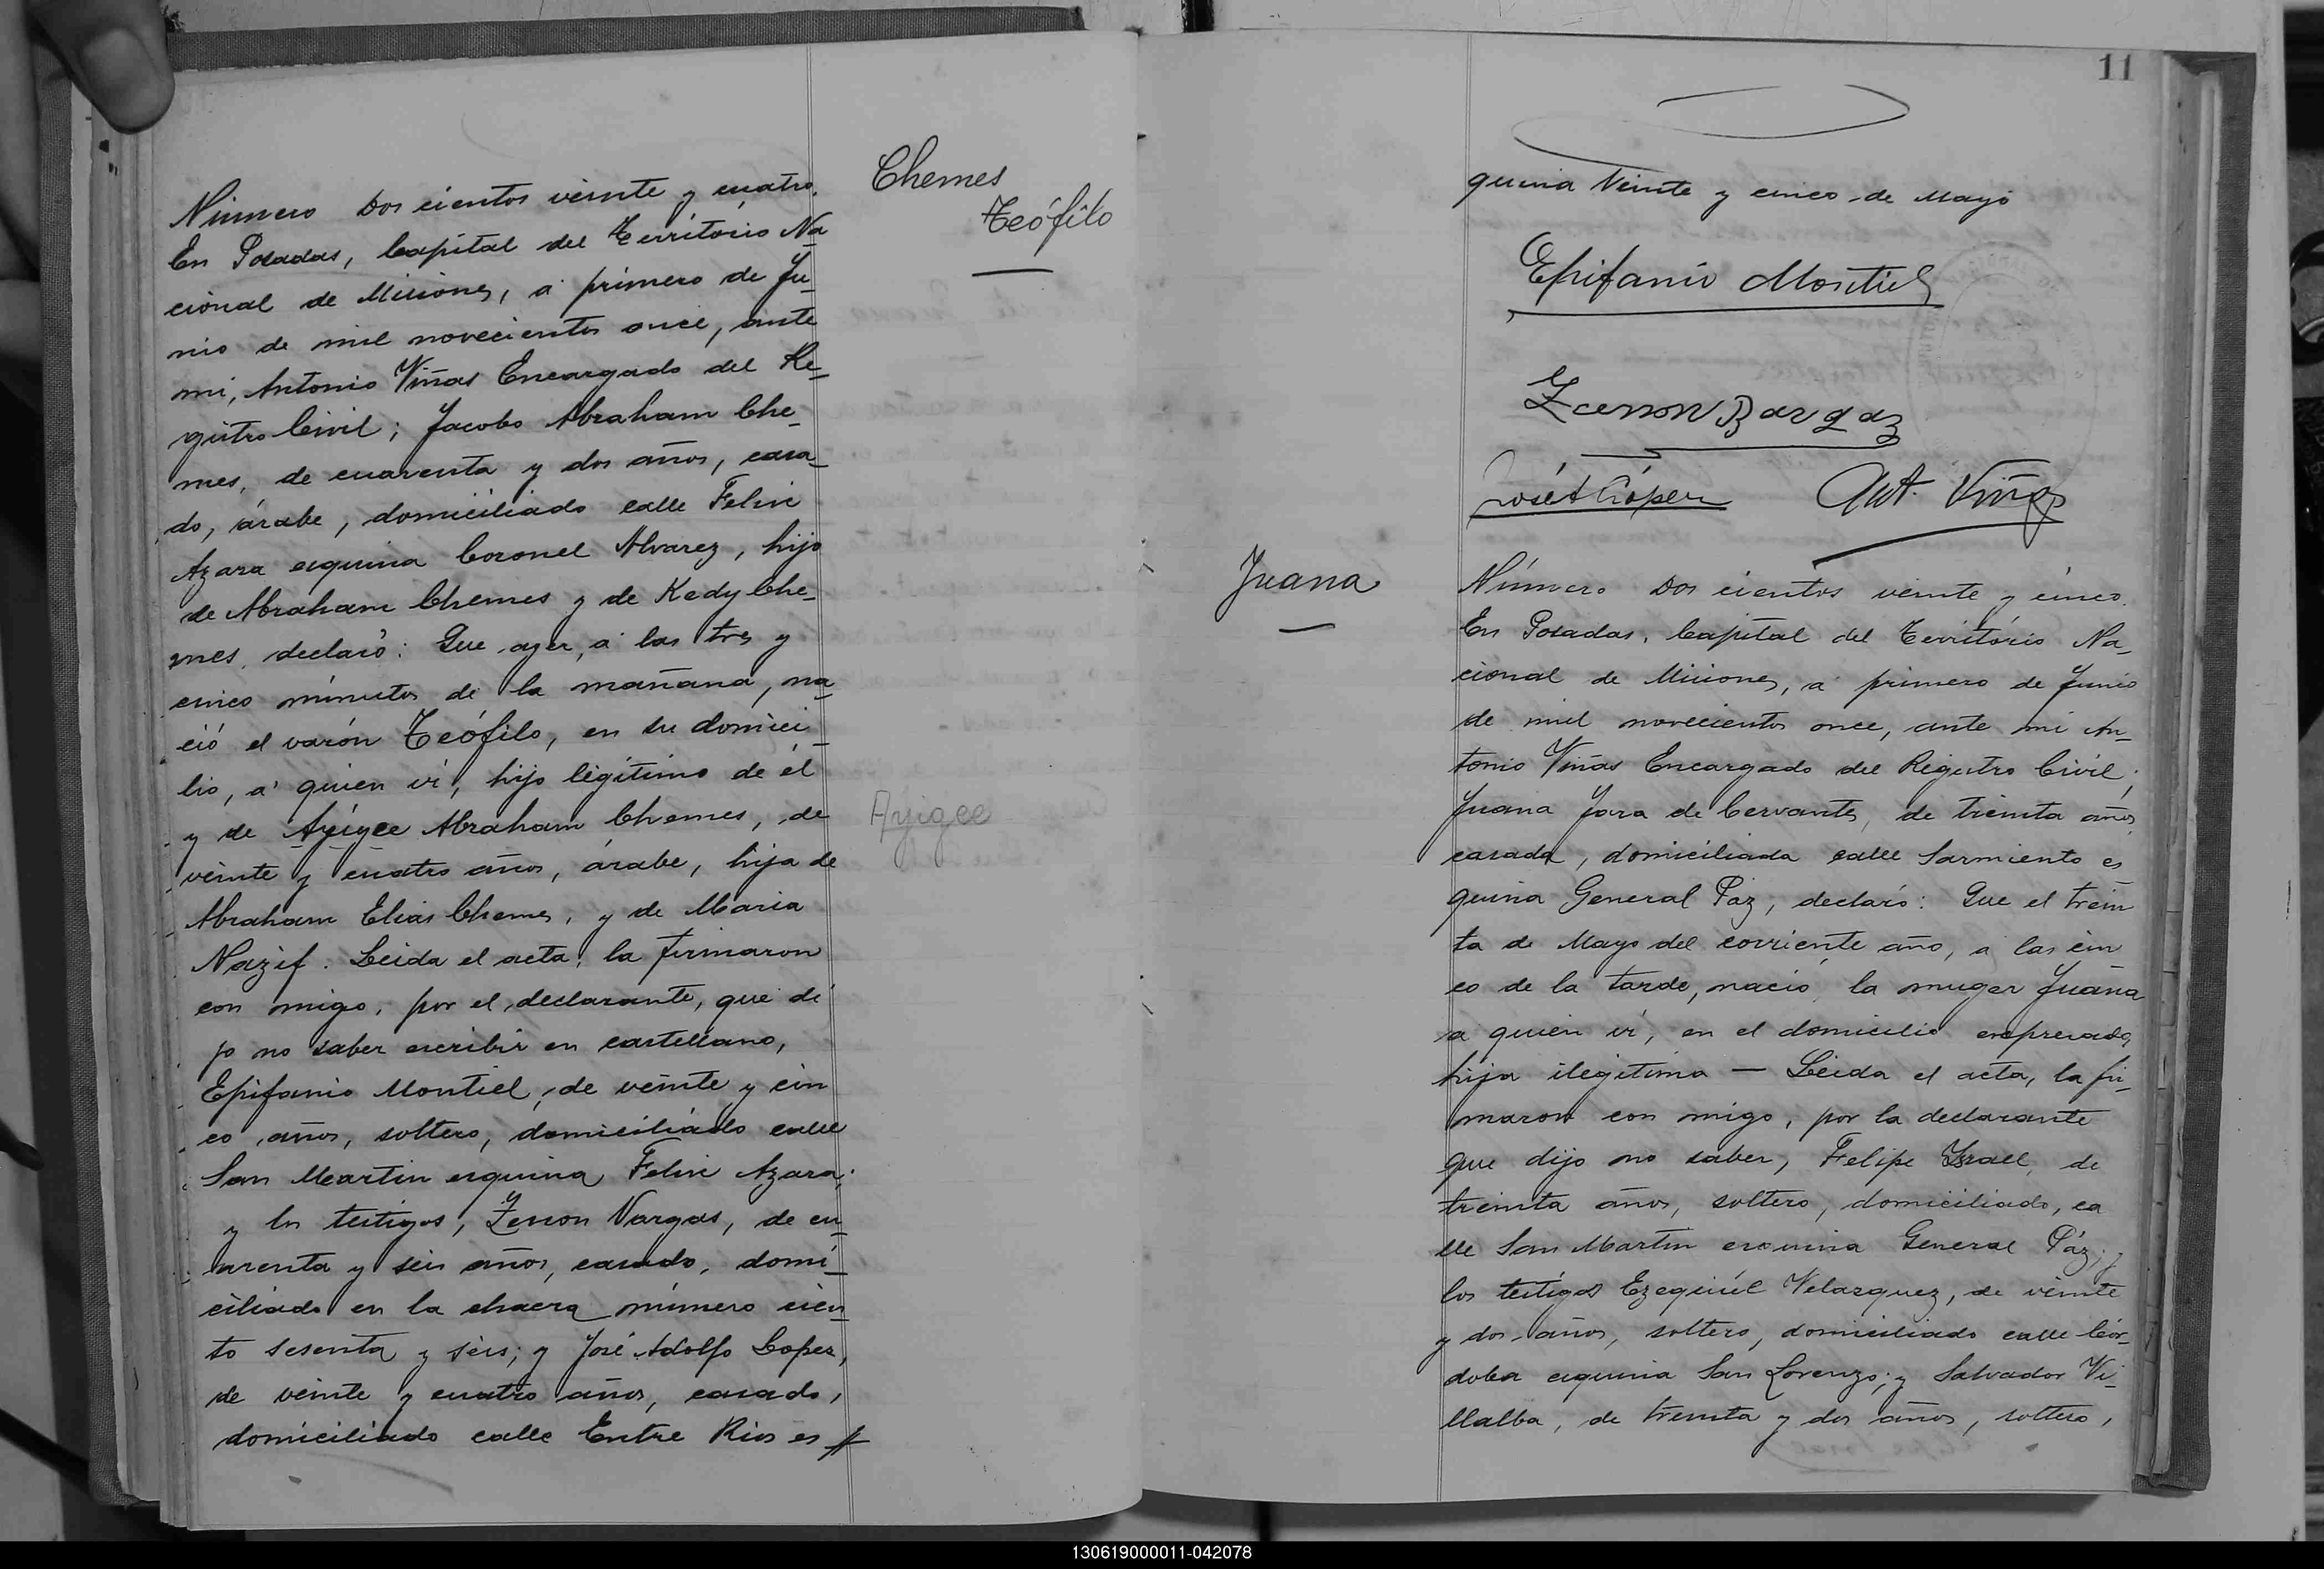 Chemes
Teófilo
Número Dos cientos veinte y cuatro.
En Posadas, Capital del Território Na
cional de Misiones, á primero de Ju_
nio de mil novecientos once, ante
mi, Antonio Viñas Encargado del Re_
gistro Civil; Jacobo Abraham Che_
mes, de cuarenta y dos años, casa_
do, árabe, domiciliado calle Felix
Azara esquina Coronel Alvarez, hijo
de Abraham Chemes y de Kady Che_
mes, declaró: Que ayer, á las tres y
cinco minutos de la mañana, na_
ció el varón Teófilo, en su domici_
lio, á quien ví, hijo legítimo de él
y de Ayigee Abraham Chemes, de
Ayigee
veinte y cuatro años, árabe, hija de
Abraham Elias Chemes, y de Maria
Nazif. Leida el acta, la firmaron
con migo, por el declarante, que di
jo no saber escribir en castellano,
Epifanio Montiel, de veinte y cin
co años, soltero, domiciliado calle
San Martin esquina Felix Azara;
y los testigos, Zenon Vargas, de cu_
arenta y seis años, casado, domi_
ciliado en la chacra número cien_
to sesenta y seis; y José Adolfo Lopez,
de veinte y cuatro años, casado,
domiciliado calle Entre Rios es
11
quina Veinte y cinco de Mayo
Epifanio Montiel
Zcenon Bargaz
José A López Ant. Viñas
Juana
Número Dos cientos veinte y cinco.
En Posadas, Capital del Território Na_
cional de Misiones, á primero de Junio
de mil novecientos once, ante mi An_
tonio Viñas Encargado del Registro Civil;
Juana Jara de Cervantes, de treinta años,
casada, domiciliada calle Sarmiento es_
quina General Paz, declaró: Que el trein
ta de Mayo del corriente año, á las cin
co de la tarde, nació la muger Juana
á quien ví, en el domicilio expresado,
hija ilegítima — Leida el acta, la fir_
maron con migo, por la declarante
que dijo no saber, Felipe Israel, de
treinta años, soltero, domiciliado, ca
lle San Martin esquina General Páz; y
los testigos Ezequiél Velazquez, de veinte
y dos años, soltero, domiciliado calle Cór_
doba esquina San Lorenzo; y Salvador Vi_
llalba, de treinta y dos años, soltero,
130619000011-042078